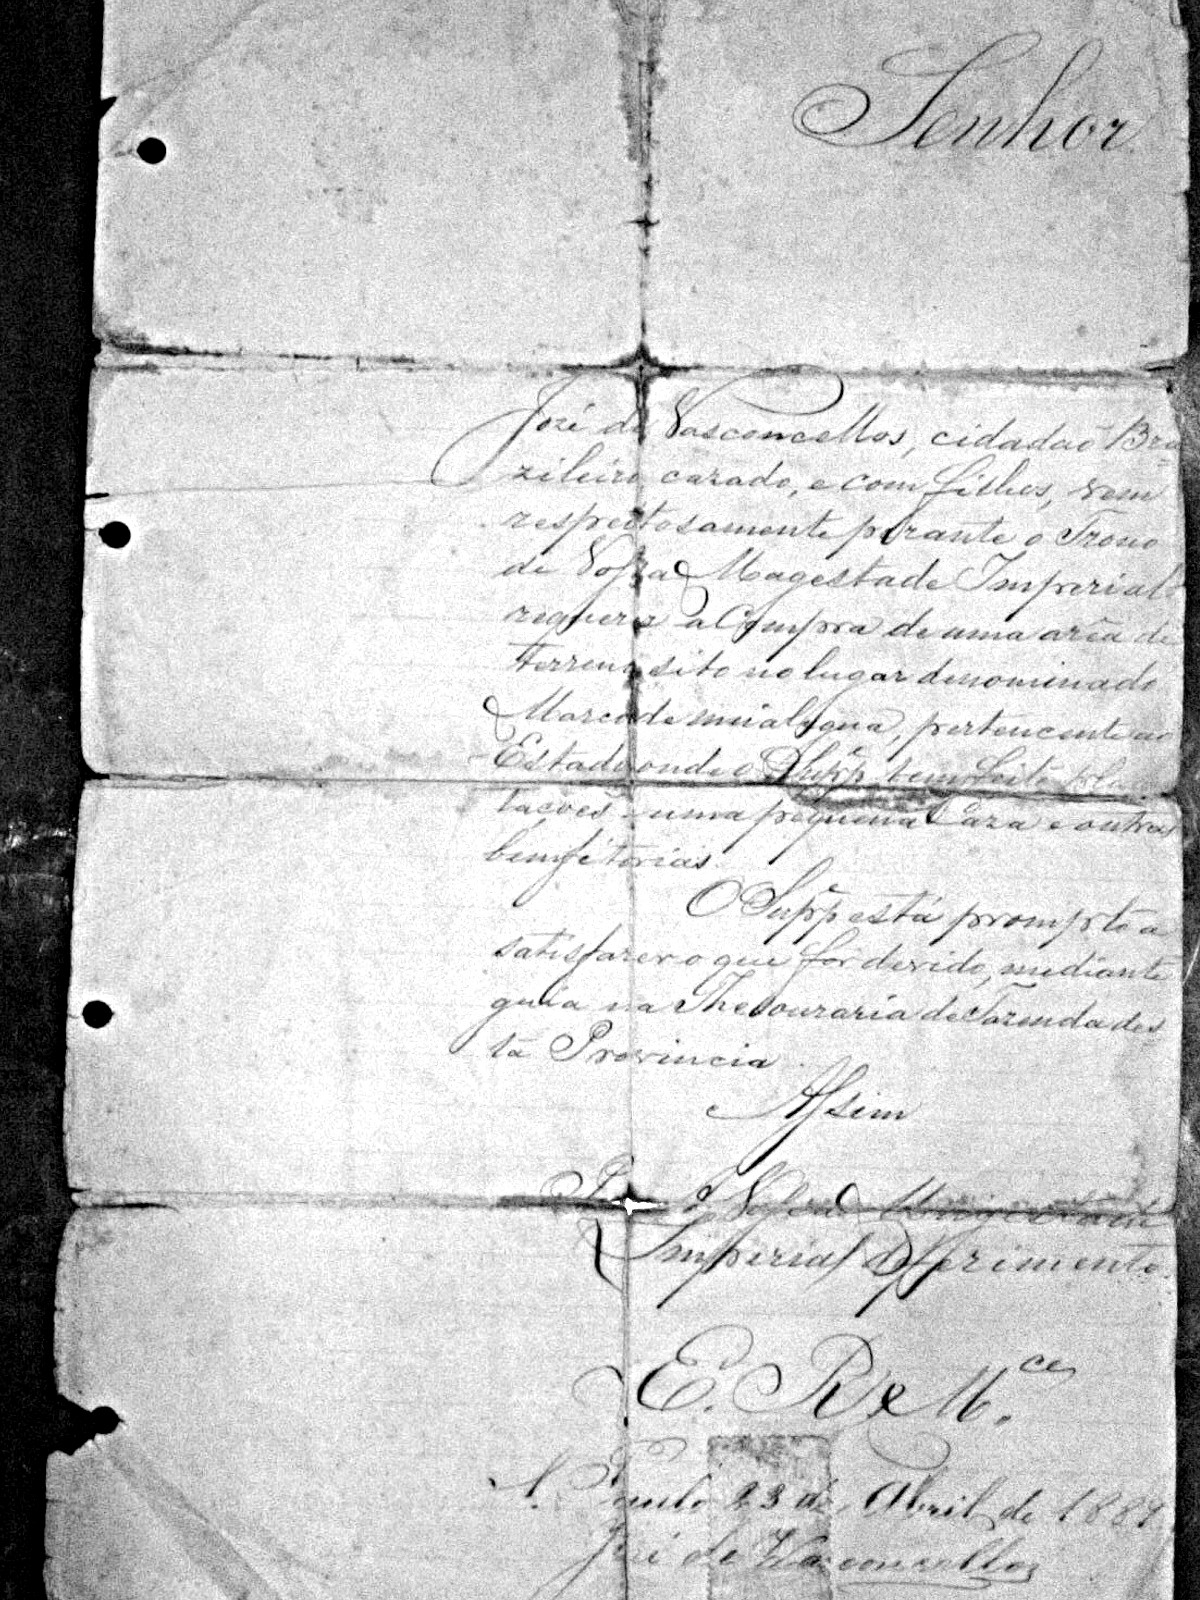 Senhor
José de Vasconcellos, cidadaõ Bra
zileiro cazado, e com filhos, vem
respeitosamente perante o Trono
de Vossa Magestade Imperial
requerer a Compra de uma aréa de
terreno sito no lugar denominado
Marco de meia legua, pertencente ao
Estado onde o Suppe tem feito plan
tacoẽs uma pequena Caza e outras
bemfeitorias.
O Suppe está prompto a
satisfazer o que fôr devido, mediante
guia na Thesouraria de Fazenda des
ta Provincia.
Assim
P. a Vossa Magestade
Imperial defferimento.
E. R. Mce.
S. Paulo 23 de Abril de 188
José de Vasconcellos